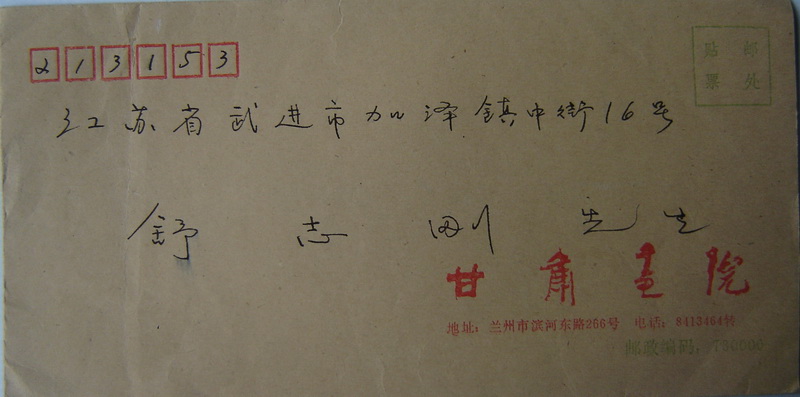 213153
贴 邮
票 处
江苏省武进市加泽镇中街16号
舒志刚先生
甘肃画院
地址：兰州市滨河东路266号 电话：8413464转
邮政编码：730000